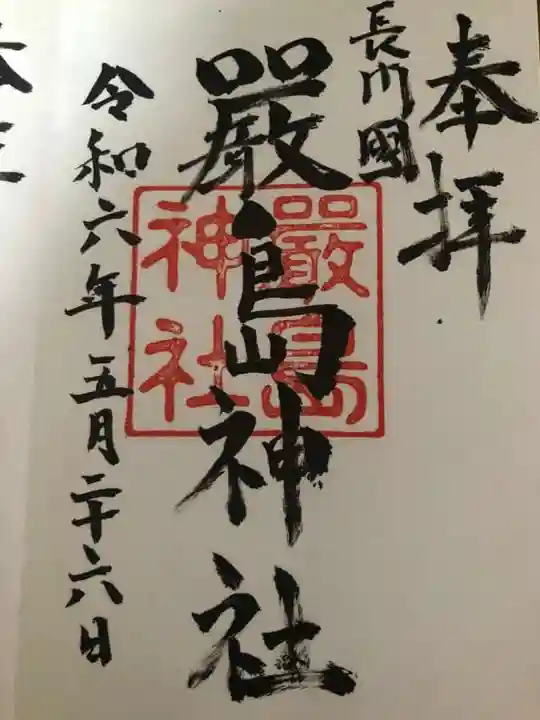 奉拝
長門國
嚴島神社
嚴島
神社
令和六年五月二十六日